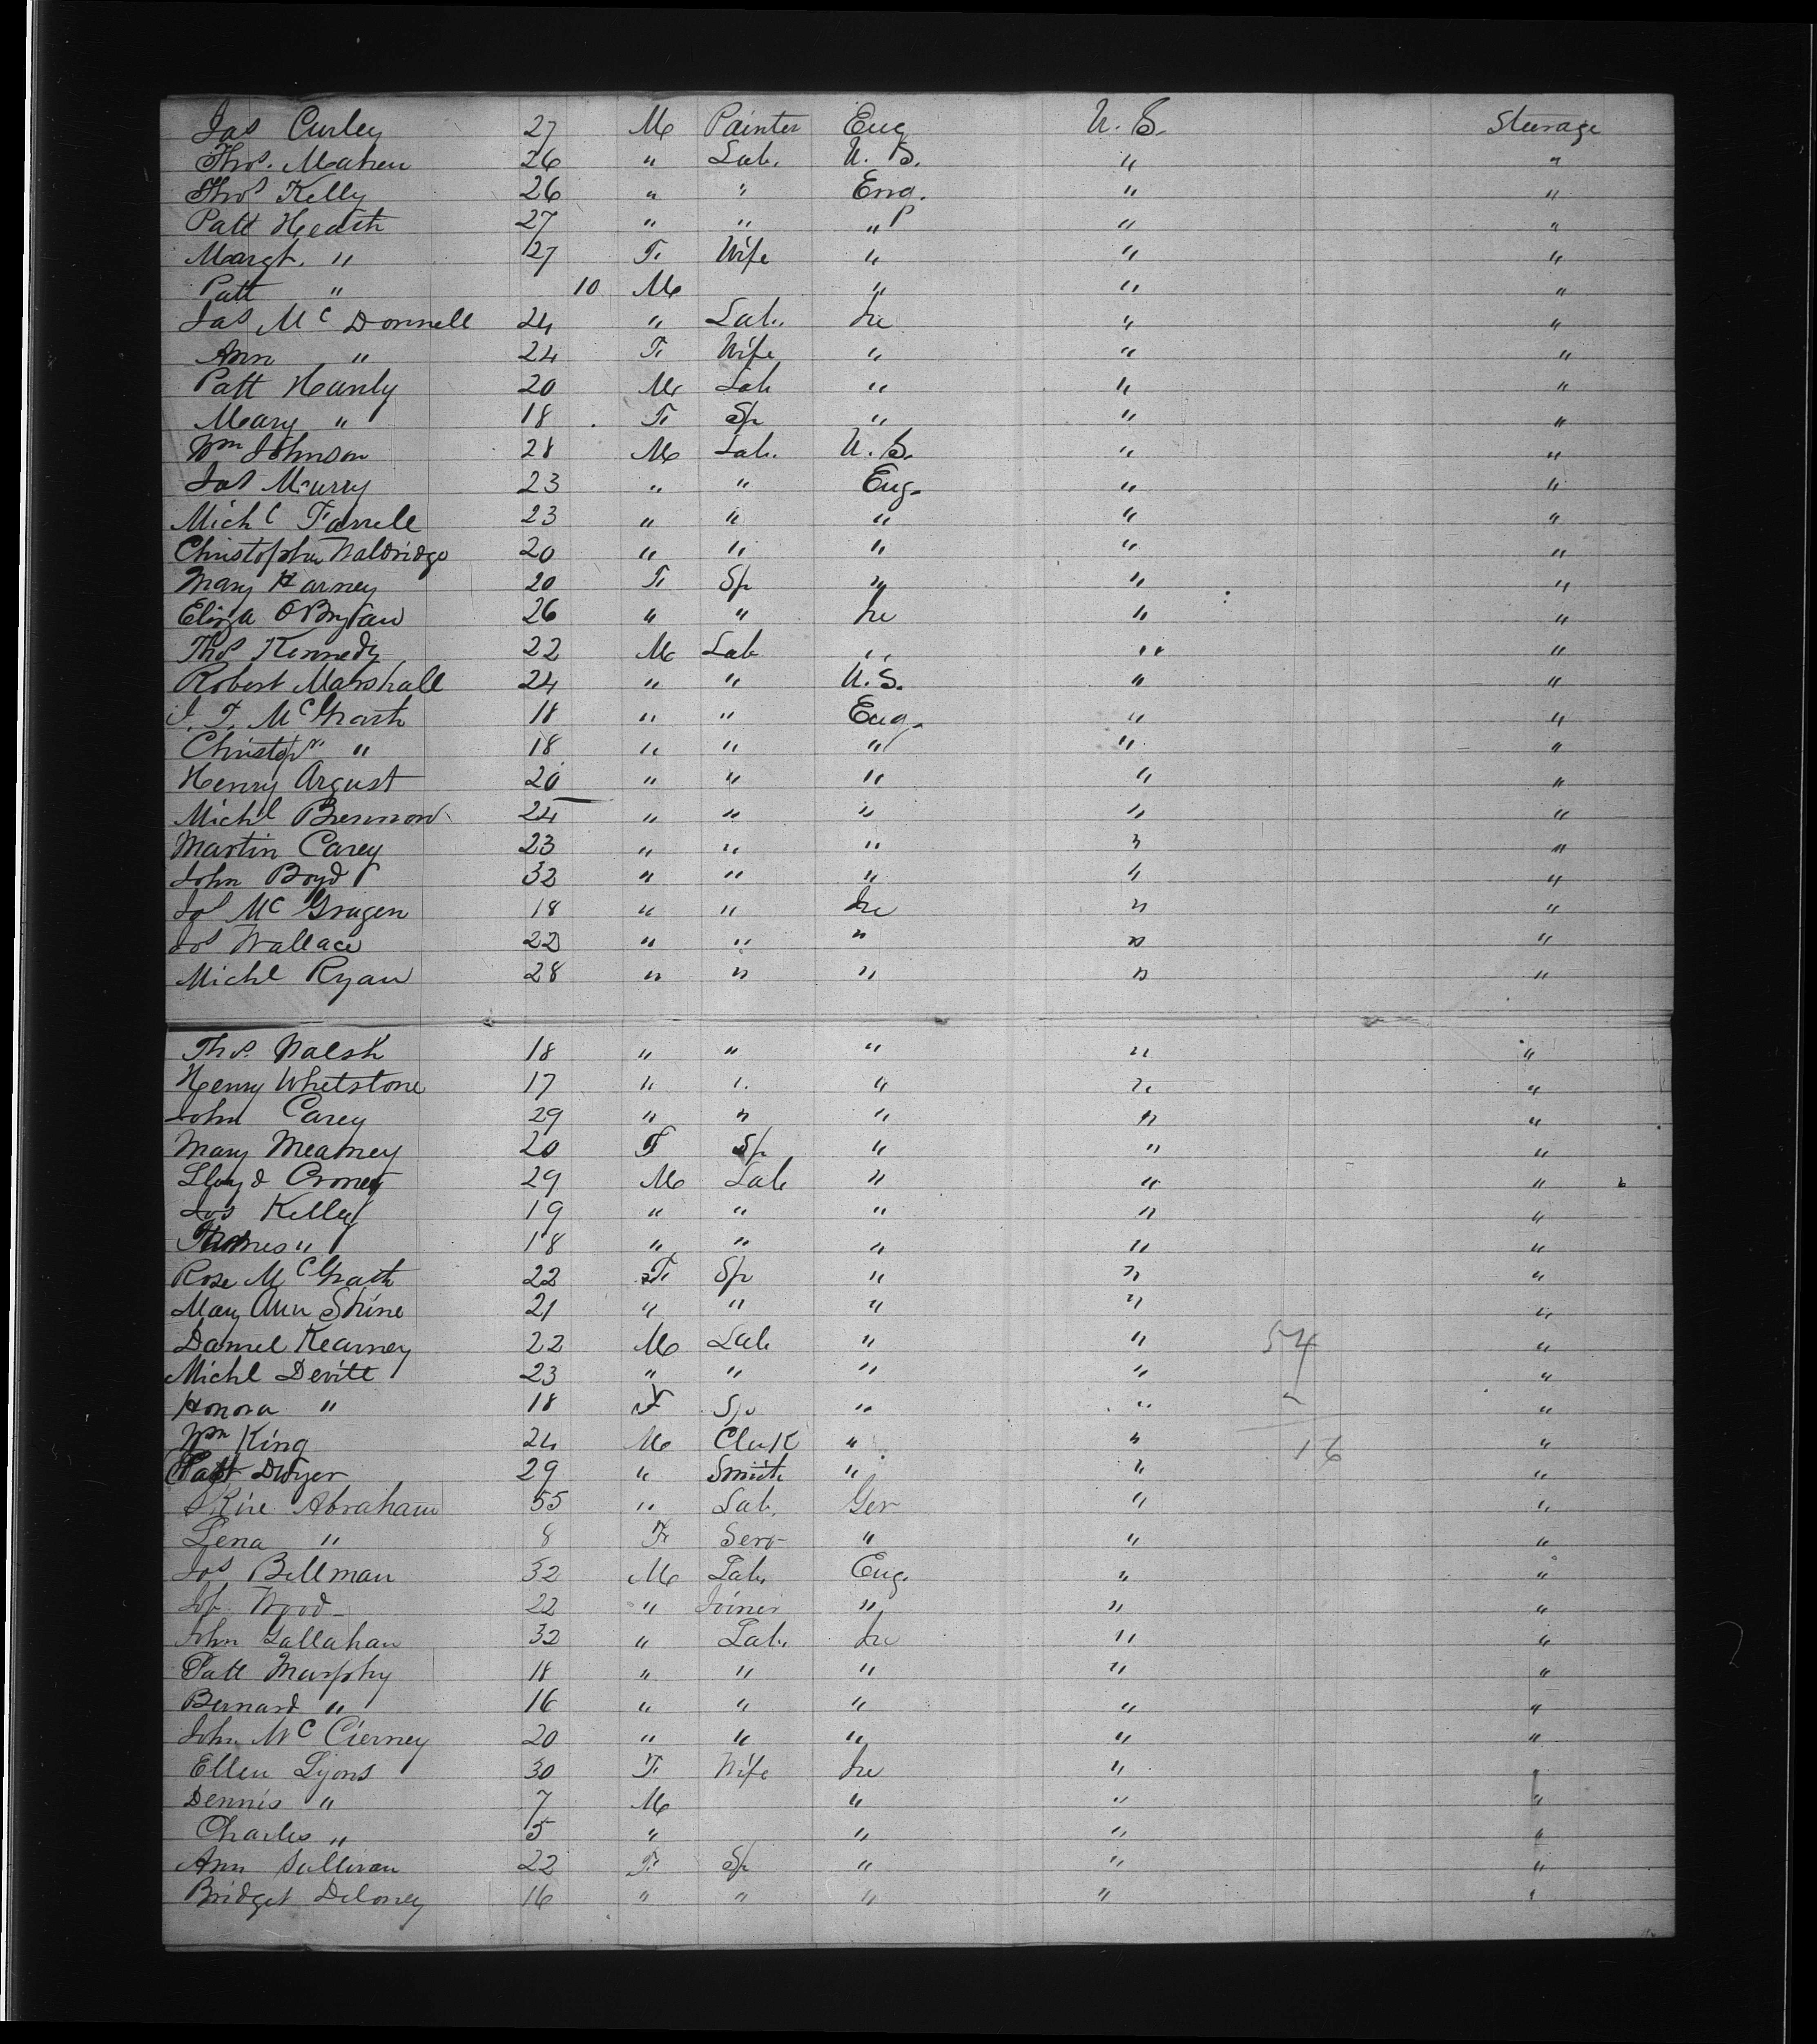 Jas Curley 27 M Painter Eng U. S. Steerage
Thos. Mahen 26 " Lab. U. S. " "
Thos Kelly 26 " " Eng. " "
Patt Heath 27 " " " " "
Margt. " 27 F Wife " " "
Patt " 10 M " " "
Jas McDonnell 24 " Lab. Ire " "
Ann " 24 F Wife " " "
Patt Hanly 20 M Lab " " "
Mary " 18 F Sp " " "
Wm Johnson 28 M Lab. U. S. " "
Jas Murry 23 " " Eng. " "
Michl Farrell 23 " " " " "
Christopher Waldridge 20 " " " " "
Mary Harney 20 F Sp " " "
Eliza O'Bryan 26 " " Ire " "
Thos Kennedy 22 M Lab " " "
Robert Marshall 24 " " U. S. " "
J. T. McGrath 18 " " Eng. " "
Christopr " 18 " " " " "
Henry Argust 20 " " " " "
Michl Brennon 24 " " " " "
Martin Carey 23 " " " " "
John Boyd 32 " " " " "
Jos McGragen 18 " " Ire " "
Jos Wallace 22 " " " " "
Michl Ryan 28 " " " " "
Thos. Walsh 18 " " " " "
Henry Whetstone 17 " " " " "
John Carey 29 " " " " "
Mary Meamey 20 F Sp " " "
Lloyd 29 M Lab " " "
Jos Kelly 19 " " " " "
Thomas " 18 " " " " "
Rose McGrath 22 F Sp " " "
Mary Ann Shine 21 " " " " "
Daniel Kearney 22 M Lab " " 54 "
Michl Devitt 23 " " " " "
Honora " 18 F Sp " " "
Wm King 24 M Clerk " " 16 "
Patt Dwyer 29 " Smith " " "
Abraham 55 " Lab. Ger " "
Lena " 8 F Serv " " "
Jos Bellman 32 M Lab. Eng. " "
Job Wood 22 " Joiner " " "
John Callahan 32 " Lab. Ire " "
Patt Murphy 18 " " " " "
Bernard " 16 " " " " "
John McCierney 20 " " " " "
Ellen Lyons 30 F Wife Ire " "
Dennis " 7 M " " "
Charles " 5 " " " "
Ann Sullivan 22 F Sp " " "
Bridget Deloney 16 " " " " "